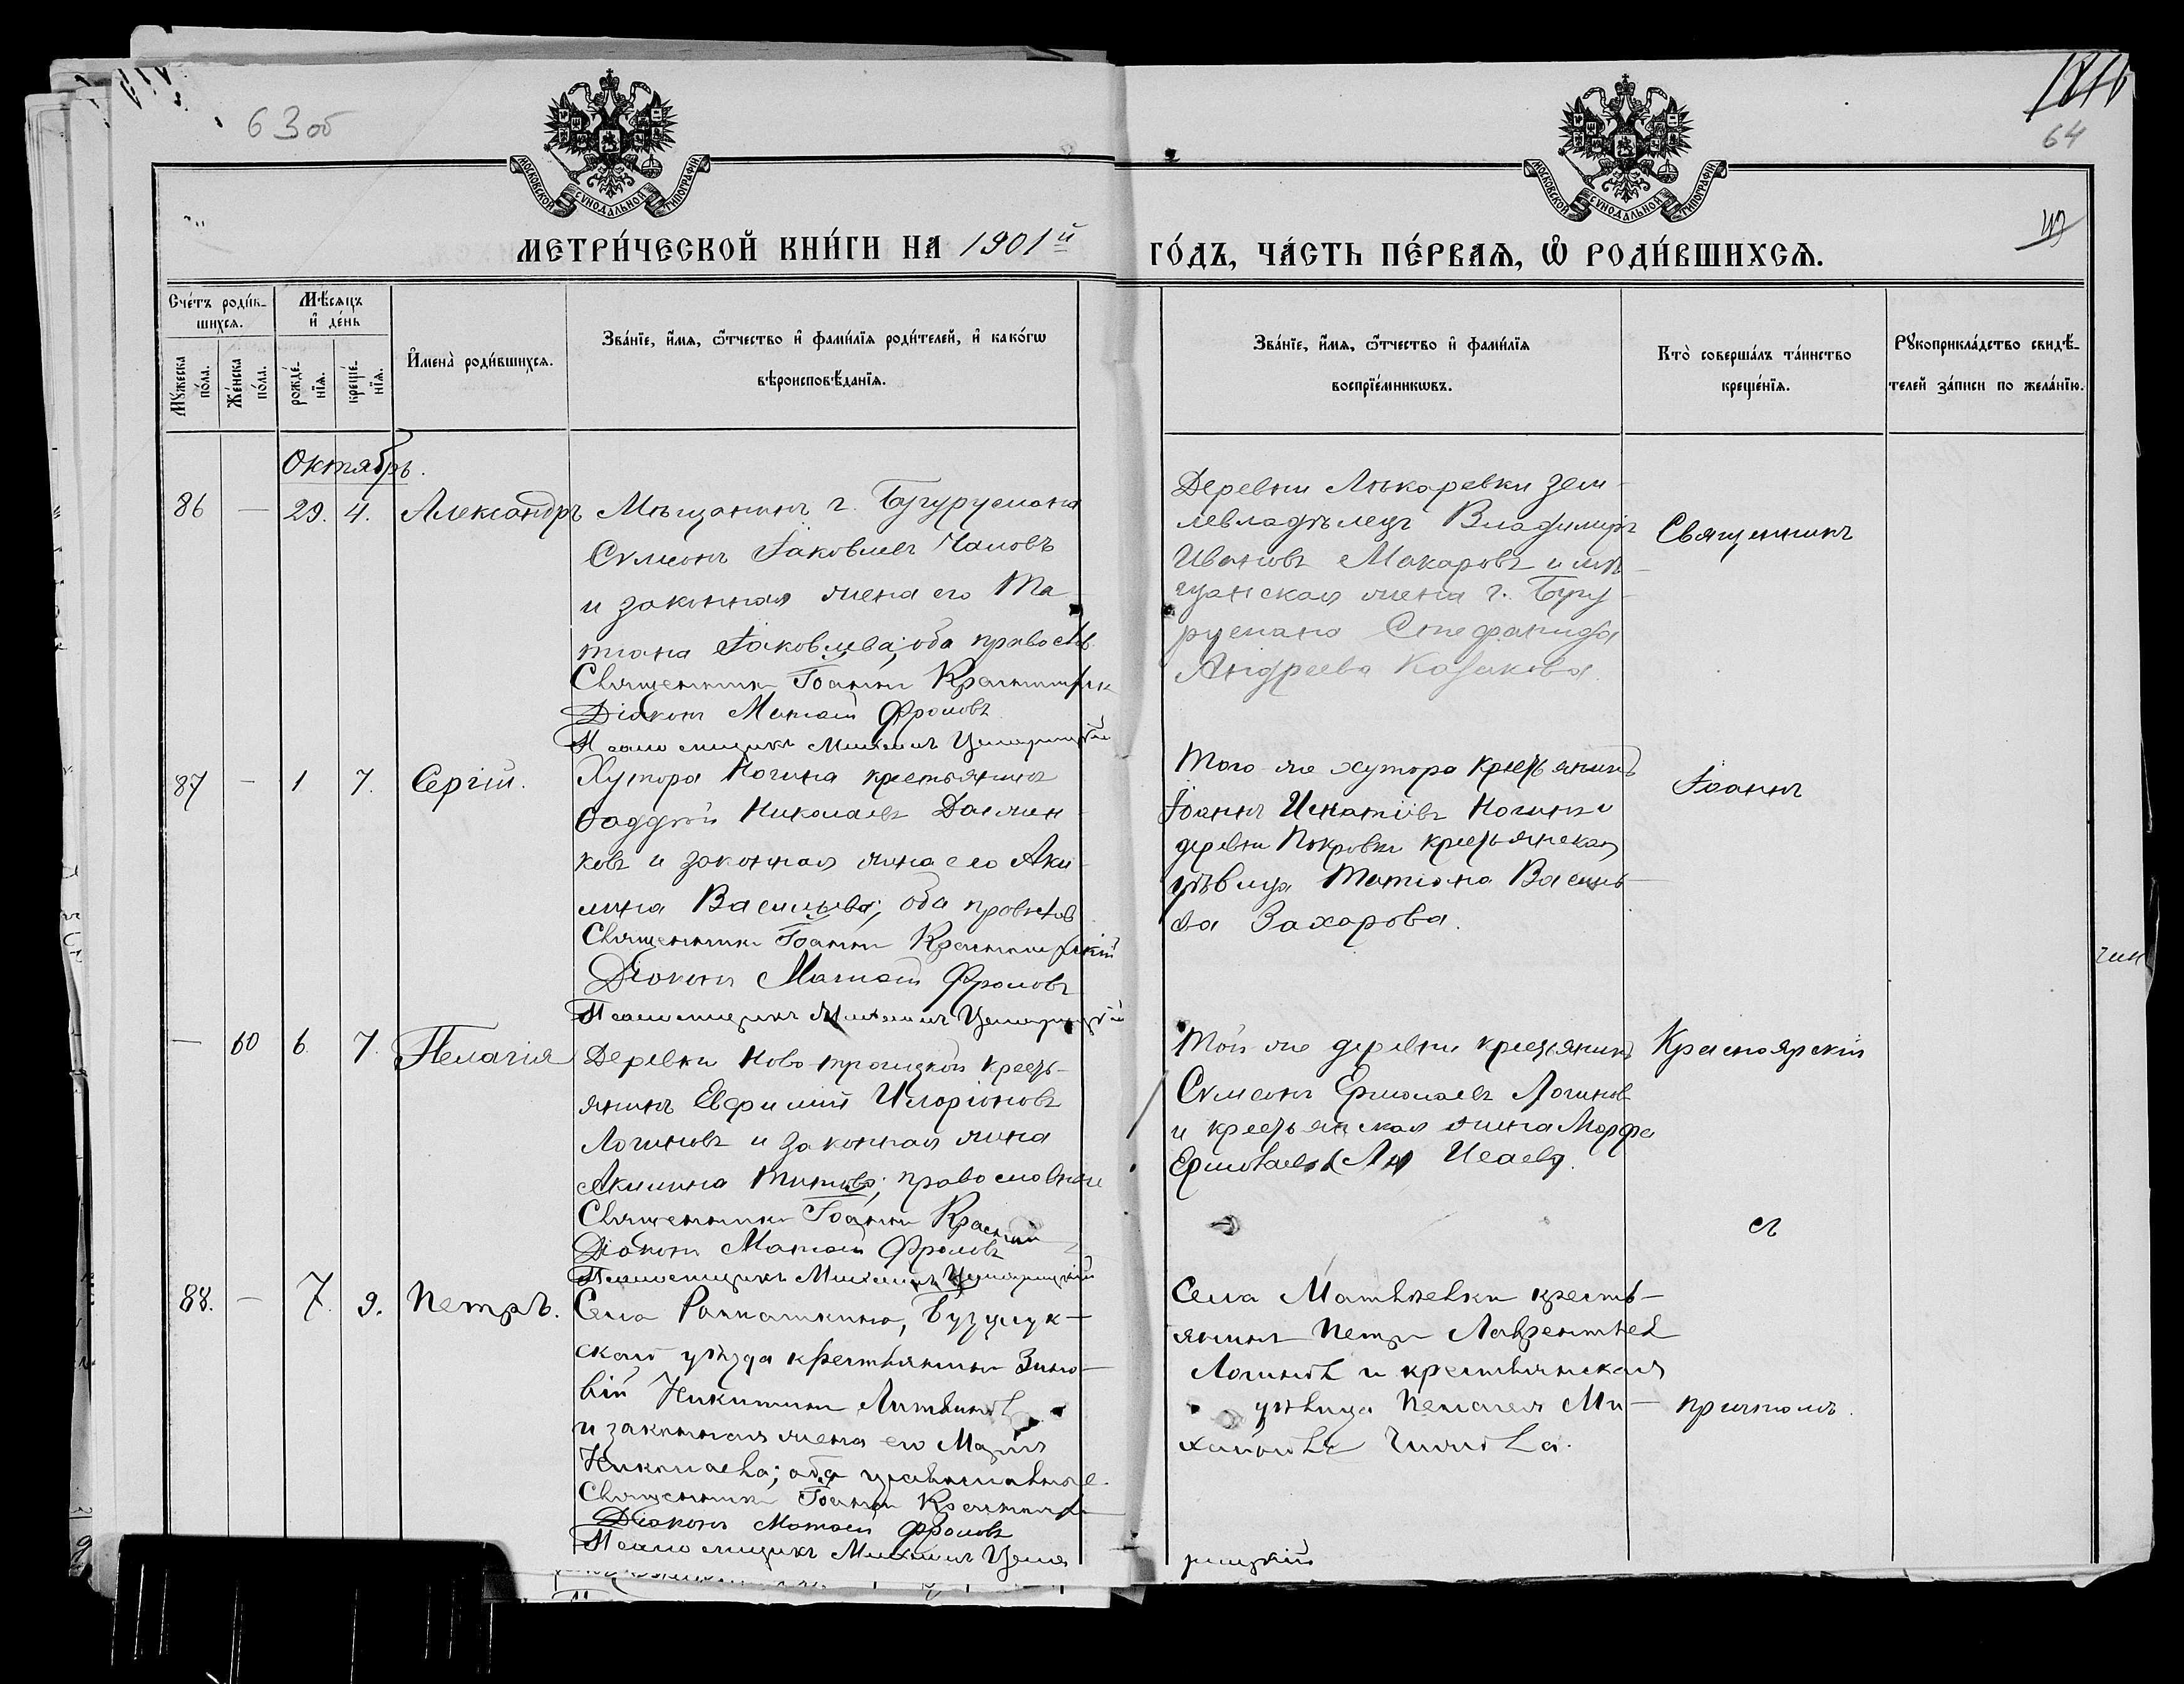 63 об
64
МОСКОВСКОЙ СѴНОДАЛЬНОЙ ТИПОГРАФІИ
МОСКОВСКОЙ СѴНОДАЛЬНОЙ ТИПОГРАФІИ
МЕТРИ́ЧЕСКОЙ КНИ́ГИ НА 1901й
ГО́ДЪ, ЧА́СТЬ ПЕ́РВАѦ, Ѿ РОДИ́ВШИХСѦ.
Сче́тъ роди́вшихсѧ.
Мꙋ́жеска по́ла.
Же́нска по́ла.
Мѣ́сѧцъ и҆ де́нь
рожде́нїѧ.
креще́нїѧ.
И҆мена̀ роди́вшихсѧ.
Зва́нїе, и҆́мѧ, ѻ҆́тчество и҆ фами́лїѧ роди́телей, и҆ како́гѡ
вѣроисповѣ́данїѧ.
Зва́нїе, и҆́мѧ, ѻ҆́тчество и҆ фами́лїѧ
воспрїе́мникѡвъ.
Кто̀ соверша́лъ та́инство
креще́нїѧ.
Рꙋкоприкла́дство свидѣ́-
телей за́писи по жела́нїю.
Октябрь.
86 — 29. 4. Александръ
Мѣщанинъ г. Бугуруслана
Сѵмеонъ Іаковлевъ Чаловъ
и законная жена его Та
тіана Іаковлева; оба правосл.
Священникъ Іоаннъ Красноярск
Діаконъ Матѳій Фроловъ
Псаломщикъ Михаилъ
Деревни Лѣкаревки зем-
левладѣлецъ Владиміръ
Ивановъ Макаровъ и мѣ-
щанская жена г. Бугу-
руслана Стефанида
Андреева Казакова.
Священникъ
87 — 1 7. Сергій.
Хутора Ногина крестьянинъ
Ѳаддѣй Николаевъ Должен
ковъ и законная жена его Аки-
лина Васильева; оба правослов
Священникъ Іоаннъ Красноярскій
Діаконъ Матѳій Фроловъ
Псаломщикъ Михаилъ
Того-же хутора крестьянинъ
Іоаннъ Игнатіевъ Ногинъ и
деревни Покровки крестьянская
дѣвица Татіана Василь-
ева Захарова.
Іоаннъ
— 60 6. 7. Пелагія
Деревни Ново-троицкой кресть-
янинъ Евфимій Иларіоновъ
Логиновъ и законная жена
Акилина Титова; православные
Священникъ Іоаннъ Красн
Діаконъ Матѳій Фроловъ
Псаломщикъ Михаилъ
Той-же деревни крестьянинъ
Сѵмеонъ Ермолаевъ Логинов
и крестьянская жена Марфа
Ермолаева Исаева.
Красноярскій
съ
88. — 7. 9. Петръ.
Села Ромашкина, Бузулук-
скаго уѣзда крестьянинъ Зино-
вій Никитинъ Литвиновъ
и законная жена его Марія
Николаева; оба православные.
Священникъ Іоаннъ Краснояр
Діаконъ Матѳій Фроловъ
Псаломщикъ Михаилъ
Села Матвѣевки кресть-
янинъ Петръ Лаврентьев
Логиновъ и крестьянская
дѣвица Пелагея Ми-
хайлова
причтомъ.